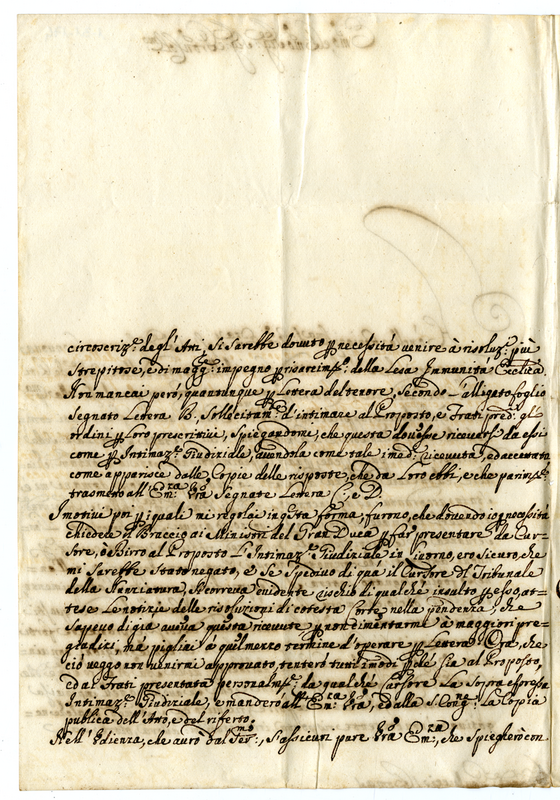 circoscriz.e degl' Atti, Si Sarebbe dovuto p necessità venire à risoluz.e più
Strepitose, e di magg.e impegno p risarcim.to della Lesa Immunità Eccl.ca
Non mancai però, quantunque p Lettera del tenore, Secondo L'alligato foglio
Segnato Lettera B. Sollecitam.te d'intimare al Proposto, e Frati pred.i gl'
ordini p Loro prescrittivi, Spiegandomi, che questa dovesse riceversi da essi
come p Intimaz.e Giudiziale, avendola come tale ricevuta, ed accettata
come apparisce dalle Copie delle risposte, che da Loro ebbi, e che parim.te
trasmetto all' Em.za V.ra Segnate Lettera C, e D.
I motivi poi p i quali mi regolai in q.ta forma, furono, che dovendo io p necessità
chiedere il Braccio ai Ministri del Gran Duca p far presentare da Cur-
Sore, ò Birro al Proposto L'Intimaz.e Giudiziale in Livorno, ero Sicuro, che
mi Sarebbe Stato negato, e Se Spedivo di quà il Cursore del Tribunale
della Nunziatura, Si correva evidente rischio di qualche insulto p esso, at-
tese Le notizie delle risoluzioni di cotesta Corte nella pendenza, che
Sapevo di già aveva questa ricevute p non cimentarmi à maggiori pre-
giudizi, mà pigliai à quel mezzo termine d'operare p Lettera. Ora, che
ciò veggo non venirmi approvato, tenterò tutti i modi p che Sia al Proposto,
ed ai Frati presentata personalm.te da qualche Cursore La Sopra espressa
Intimaz.e Giudiziale, e manderò all' Em.za V.ra, ed alla S. Cong.ne La Copia
publica dell'Atto, e del riferto.
Nell' Udienza, che avrò dal Ser.mo, S'assicuri pure V.ra Em.za, che Spiegherò con